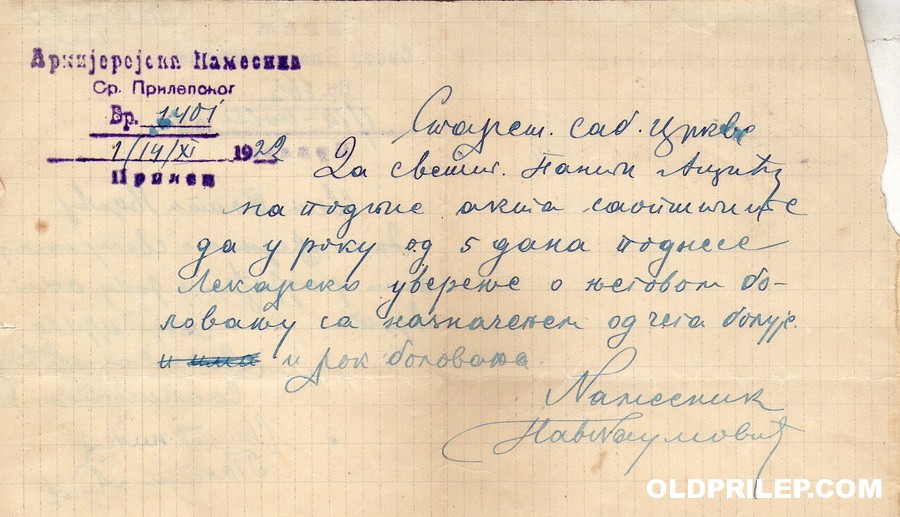 Архијерејска Намесниц
Ср. Прилепског
Бр. 1401
1/14/XI 1922
Прилеп
Старет. саб. Цркве
За свешт. Панти Ацић
на подпис акта саопштите
да у року од 5 дана поднесе
Лекарско уверење о његовом бо-
ловању са назначењем од чега болује
и има и рок боловања.
Намесник
OLDPRILEP.COM